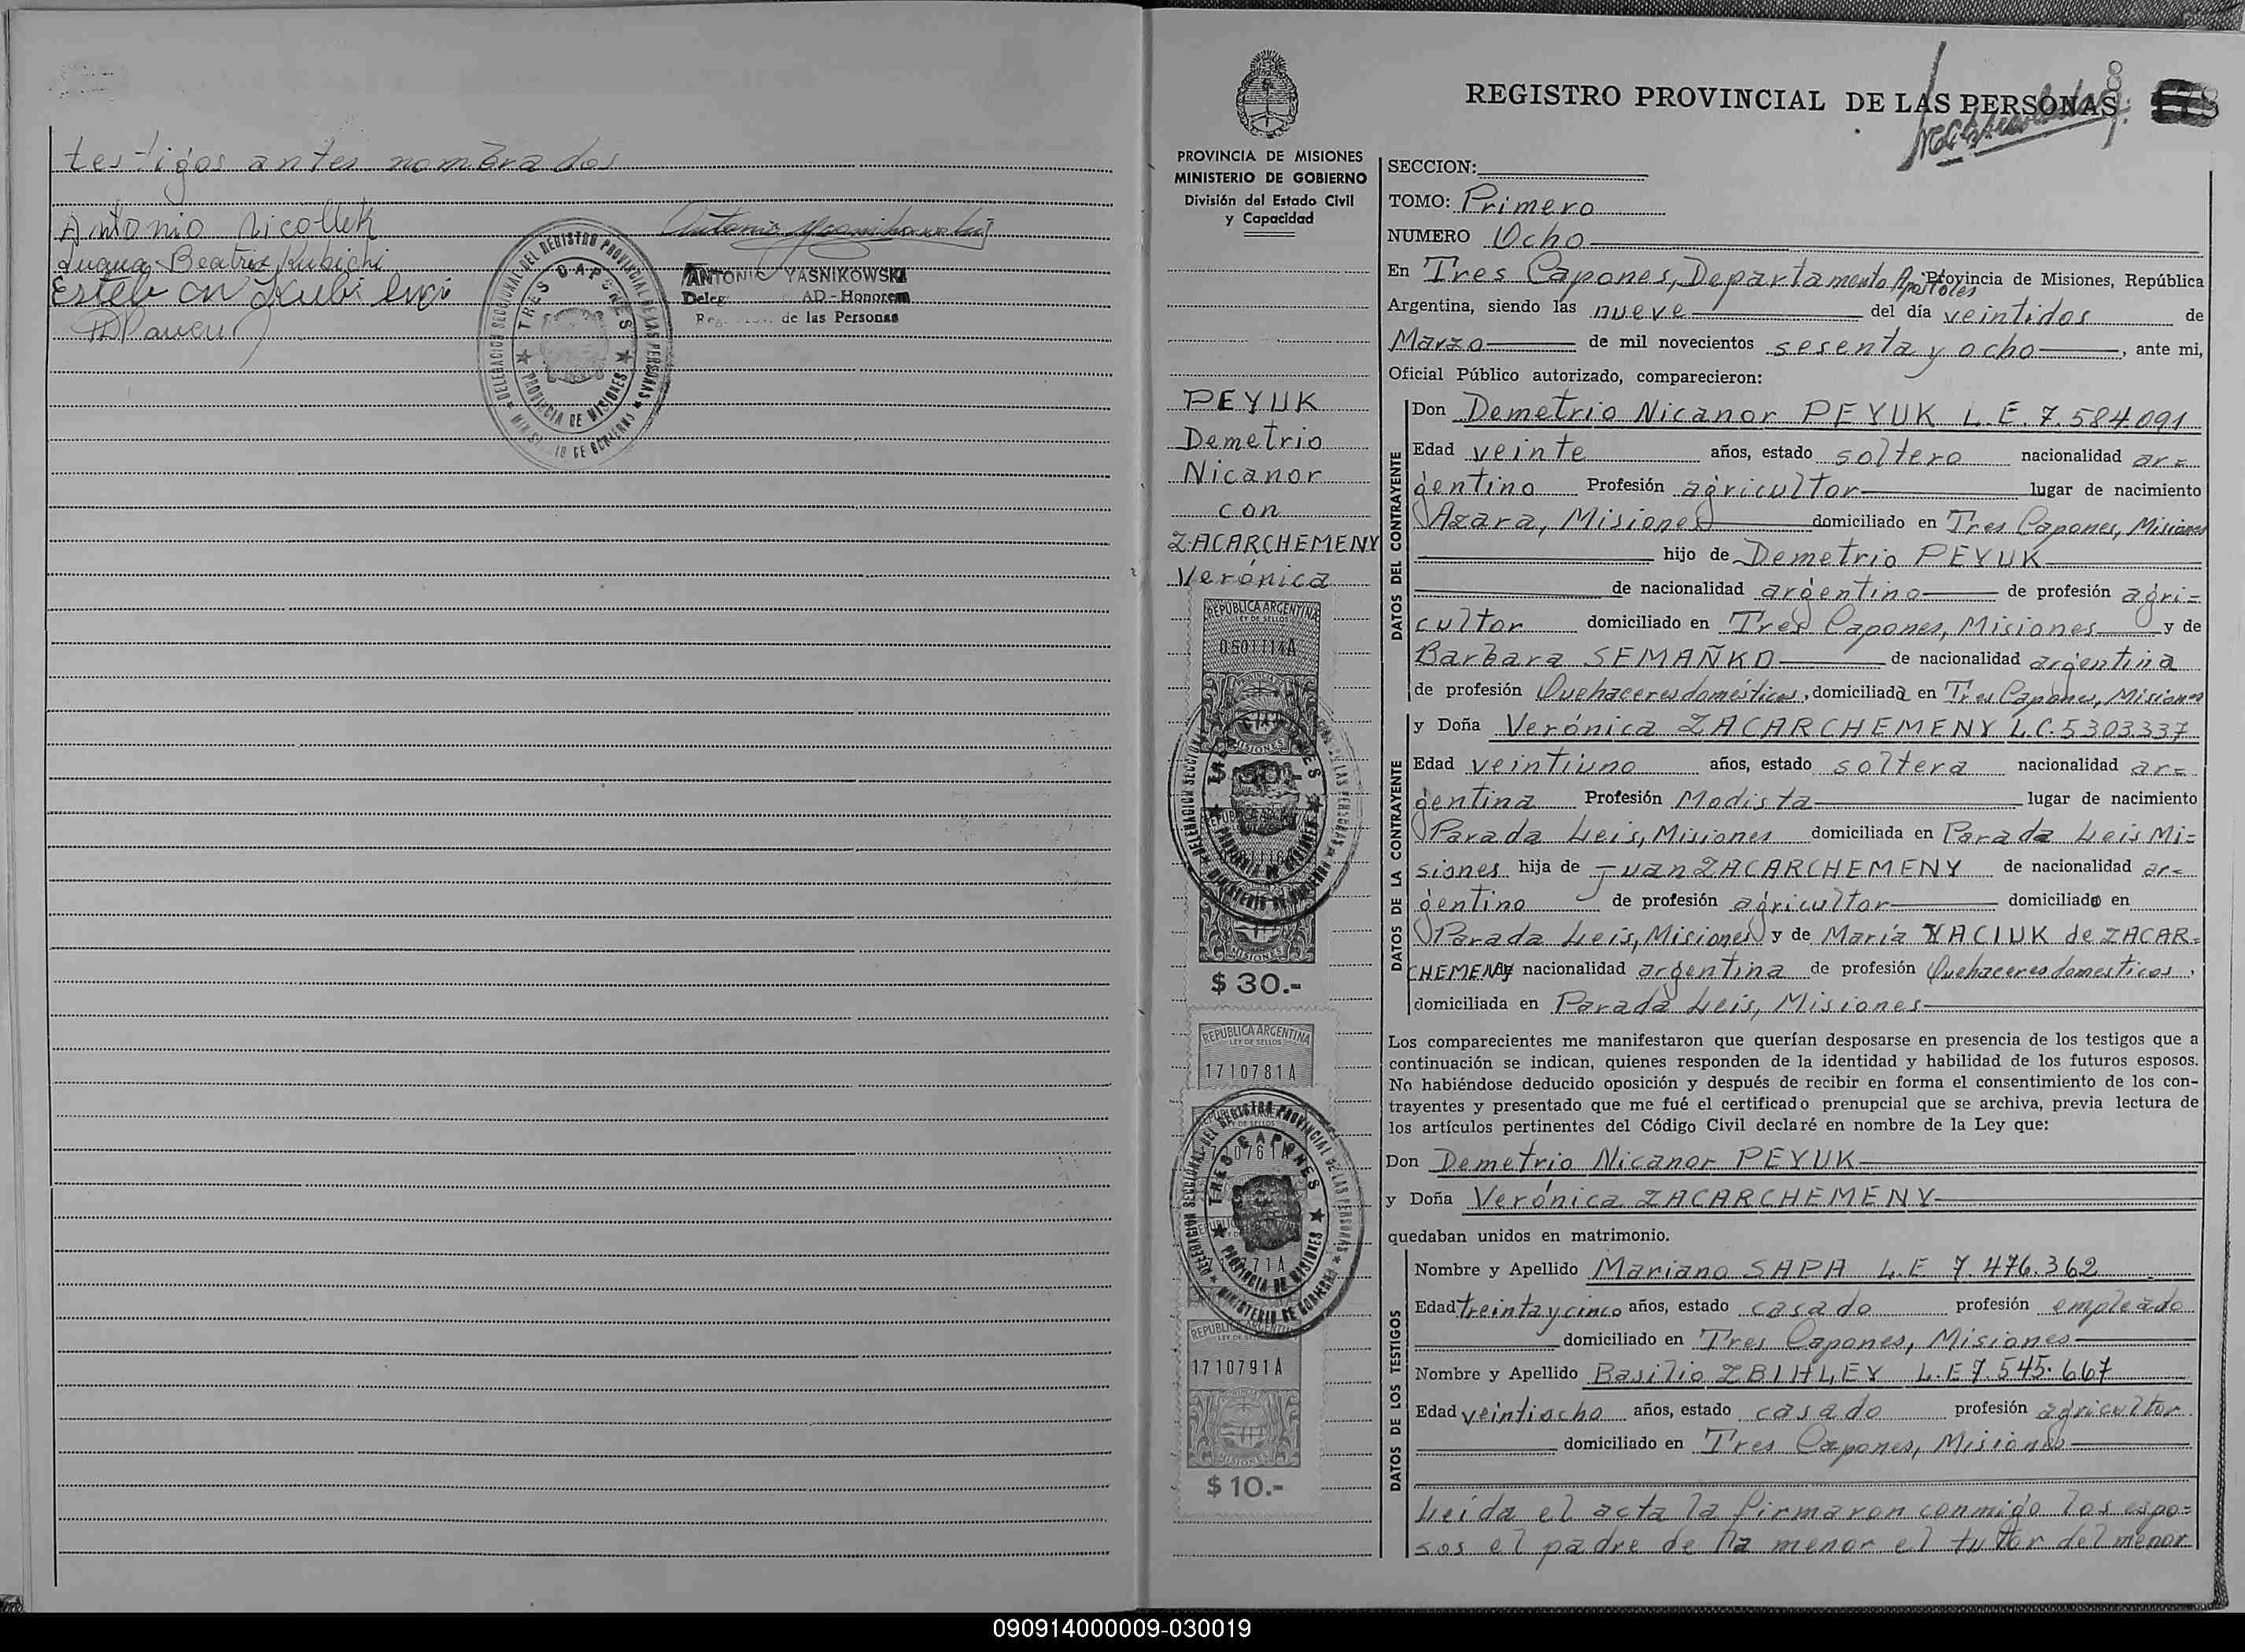 testigos antes nombrados
Antonio Nicolluk
Juana Beatriz Kubichi
Esteban
ANTONIO YASNIKOWSKI
Deleg AD-Honorem
de las Personas
DELEGACION SECCIONAL DEL REGISTRO PROVINCIAL DE LAS PERSONAS
TRES CAPONES
PROVINCIA DE MISIONES
REGISTRO PROVINCIAL DE LAS PERSONAS
8
PROVINCIA DE MISIONES
MINISTERIO DE GOBIERNO
División del Estado Civil
y Capacidad
PEYUK
Demetrio
Nicanor
con
ZACARCHEMENY
Verónica
REPUBLICA ARGENTINA
LEY DE SELLOS
0501114A
MISIONES
$ 30.-
REPUBLICA ARGENTINA
LEY DE SELLOS
1710781A
DELEGACION SECCIONAL DEL REGISTRO PROVINCIAL DE LAS PERSONAS
TRES CAPONES
PROVINCIA DE MISIONES
MINISTERIO DE GOBIERNO
1710791A
MISIONES
$ 10.-
SECCION:
TOMO: Primero
NUMERO Ocho
En Tres Capones, Departamento Apostoles Provincia de Misiones, República
Argentina, siendo las nueve del día veintidos de
Marzo de mil novecientos sesenta y ocho, ante mi,
Oficial Público autorizado, comparecieron:
DATOS DEL CONTRAYENTE
Don Demetrio Nicanor PEYUK L.E. 7.584.091
Edad veinte años, estado soltero nacionalidad ar=
gentino Profesión agricultor lugar de nacimiento
Azara, Misiones domiciliado en Tres Capones, Misiones
hijo de Demetrio PEYUK
de nacionalidad argentino de profesión agri=
cultor domiciliado en Tres Capones, Misiones y de
Barbara SEMAÑKO de nacionalidad argentina
de profesión Quehaceres domésticos, domiciliada en Tres Capones, Misiones
DATOS DE LA CONTRAYENTE
y Doña Verónica ZACARCHEMENY L.C. 5303.337
Edad veintiuno años, estado soltera nacionalidad ar=
gentina Profesión Modista lugar de nacimiento
Parada Leis, Misiones domiciliada en Parada Leis Mi=
siones hija de Juan ZACARCHEMENY de nacionalidad ar=
gentino de profesión agricultor domiciliado en
Parada Leis, Misiones y de María HACIUK de ZACAR=
CHEMENY nacionalidad argentina de profesión Quehaceres domesticos,
domiciliada en Parada Leis, Misiones
Los comparecientes me manifestaron que querían desposarse en presencia de los testigos que a
continuación se indican, quienes responden de la identidad y habilidad de los futuros esposos.
No habiéndose deducido oposición y después de recibir en forma el consentimiento de los con-
trayentes y presentado que me fué el certificado prenupcial que se archiva, previa lectura de
los artículos pertinentes del Código Civil declaré en nombre de la Ley que:
Don Demetrio Nicanor PEYUK
y Doña Verónica ZACARCHEMENY
quedaban unidos en matrimonio.
DATOS DE LOS TESTIGOS
Nombre y Apellido Mariano SAPA L.E 7.476.362
Edad treinta y cinco años, estado casado profesión empleado
domiciliado en Tres Capones, Misiones
Nombre y Apellido Basilio ZBIHLEY L.E 7.545.667
Edad veintiocho años, estado casado profesión agricultor
domiciliado en Tres Capones, Misiones
Leida el acta la firmaron conmigo los espo=
sos el padre de la menor el tutor del menor
090914000009-030019